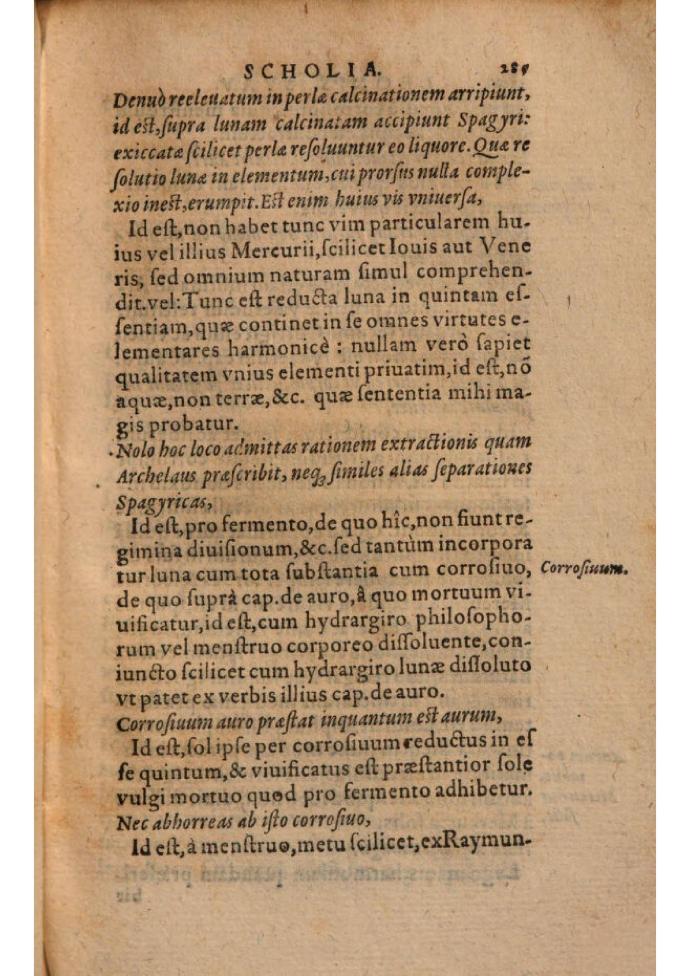 SCHOLIA. 289
Denuò reeleuatum in perlæ calcinationem arripiunt,
id est, supra lunam calcinatam accipiunt Spagyri:
exiccatæ scilicet perlæ resoluuntur eo liquore. Quæ re
solutio lunæ in elementum, cui prorsus nulla comple-
xio inest, erumpit. Est enim huius vis vniuersa,
Id est, non habet tunc vim particularem hu-
ius vel illius Mercurii, scilicet Iouis aut Vene
ris, sed omnium naturam simul comprehen-
dit. vel: Tunc est reducta luna in quintam es-
sentiam, quæ continet in se omnes virtutes e-
lementares harmonicè : nullam verò sapiet
qualitatem vnius elementi priuatim, id est, nõ
aquæ, non terræ, &c. quæ sententia mihi ma-
gis probatur.
Nolo hoc loco admittas rationem extractionis quam
Archelaus præscribit, neq; similes alias separationes
Spagyricas,
Id est, pro fermento, de quo hîc, non fiunt re-
gimina diuisionum, &c. sed tantùm incorpora
tur luna cum tota substantia cum corrosiuo, Corrosiuum.
de quo suprà cap. de auro, â quo mortuum vi-
uificatur, id est, cum hydrargiro philosopho-
rum vel menstruo corporeo dissoluente, con-
iuncto scilicet cum hydrargiro lunæ dissoluto
vt patet ex verbis illius cap. de auro.
Corrosiuum auro præstat inquantum est aurum,
Id est, sol ipse per corrosiuum reductus in es
se quintum, & viuificatus est præstantior sole
vulgi mortuo quod pro fermento adhibetur.
Nec abhorreas ab isto corrosiuo,
Id est, à menstruo, metu scilicet, ex Raymun-